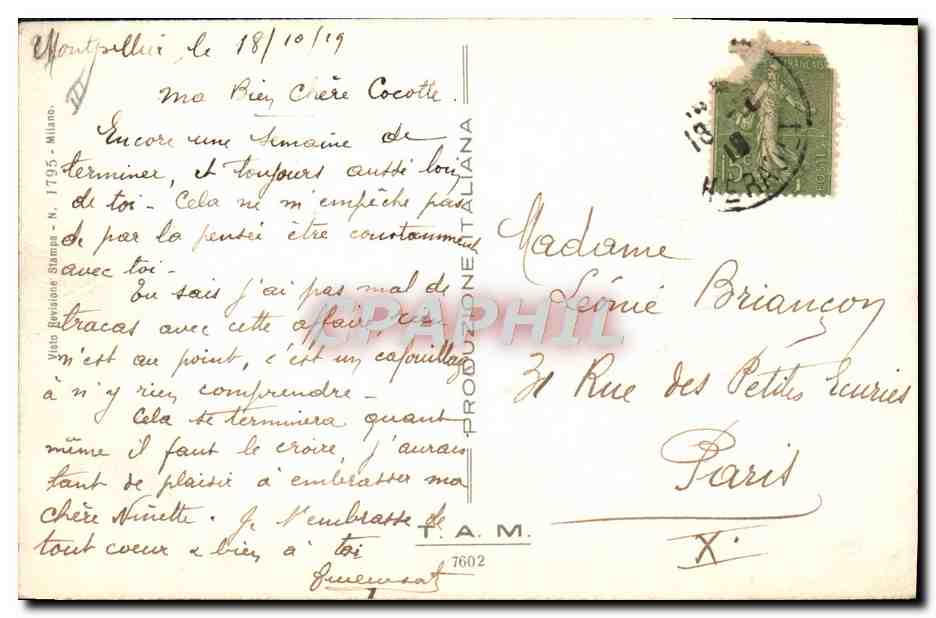 Montpellier le 18/10/19
III
Ma Bien Chère Cocotte.
Encore une semaine de
terminer, et toujours aussi loin
de toi - Cela ne m'empêche pas
de par la pensée être constamment
avec toi -
Tu sais j'ai pas mal de
tracas avec cette affaire, rien
n'est au point, c'est un cafouillage
à n'y rien comprendre -
Cela se terminera quant
même il faut le croire, j'aurais
tant de plaisir à embrasser ma
chère Ninette. Je t'embrasse de
tout coeur & bien à toi
Visto Revisione Stampa - N. 1795 - Milano.
PRODUZIONE ITALIANA
T. A. M.
7602
FRANÇAIS
15c
POSTE
18
19
HERAULT
Madame
Léonie Briançon
31 Rue des Petites Ecuries
Paris
X.
CPAPHIL